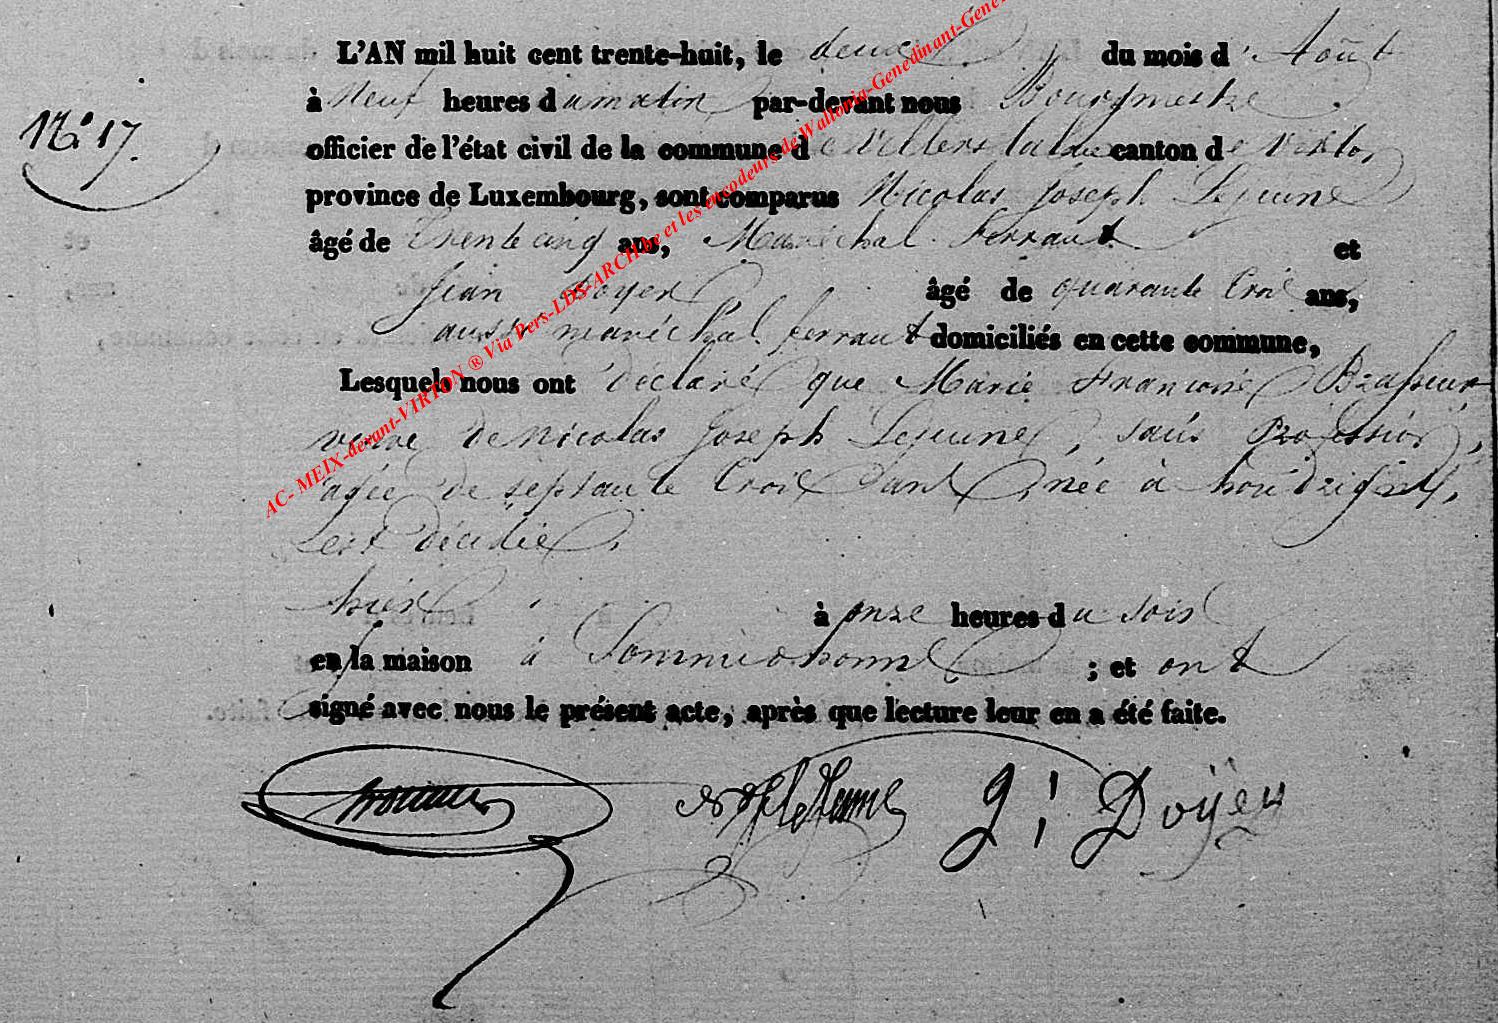 L'AN mil huit cent trente-huit, le deux du mois d'Août
à Neuf heures du matin par-devant nous Bourgmestre
N.° 17.
officier de l'état civil de la commune de Villers la lue canton de Virton
province de Luxembourg, sont comparus Nicolas Joseph Lejeune
âgé de trente cinq ans, Maréchal ferrant et
Jean Doyen âgé de quarante troi ans,
aussi maréchal ferrant domiciliés en cette commune,
Lesquels nous ont déclaré que Marie Françoise Brasseur
veuve de Nicolas Joseph Lejeune, sans Profession,
agée de septante trois ans, née à houdrigny,
est décédée
hier à onze heures du soir
en la maison à Sommethonne ; et ont
signé avec nous le présent acte, après que lecture leur en a été faite.
le Jeune J: Doyen
AC- MEIX-devant-VIRTON ® Via Pers-LDS-ARCH be et les encodeurs de Wallonia-Genedinant-Gene